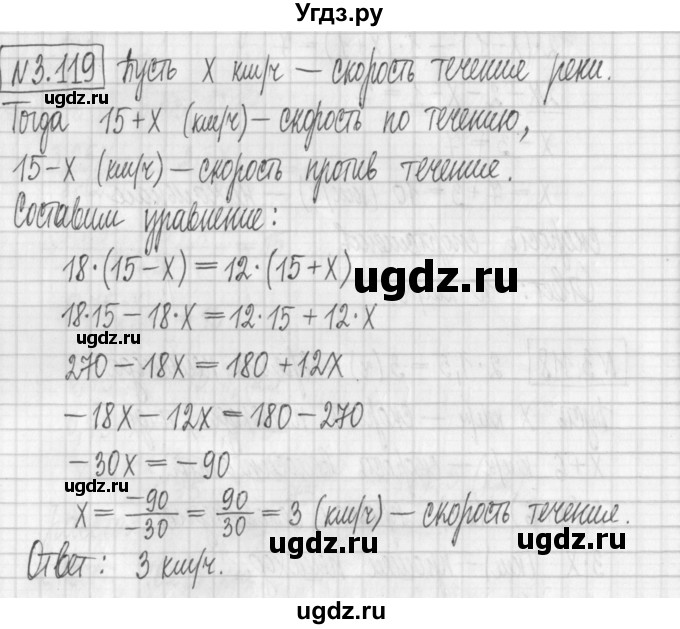 Угdz.ру
№3.119 Пусть x км/ч — скорость течение реки.
ugdz.ru
Тогда 15+x (км/ч) — скорость по течению,
15-x (км/ч) — скорость против течение.
Составим уравнение:
18·(15-x)=12·(15+x)
ugdz.ru
18·15-18·x=12·15+12·x
ugdz.ru
270-18x=180+12x
-18x-12x=180-270
-30x=-90
ugdz.ru
x=-90/-30=90/30=3 (км/ч) — скорость течение.
ugdz.ru
Ответ: 3 км/ч.
ugdz.ru
ugdz.ru